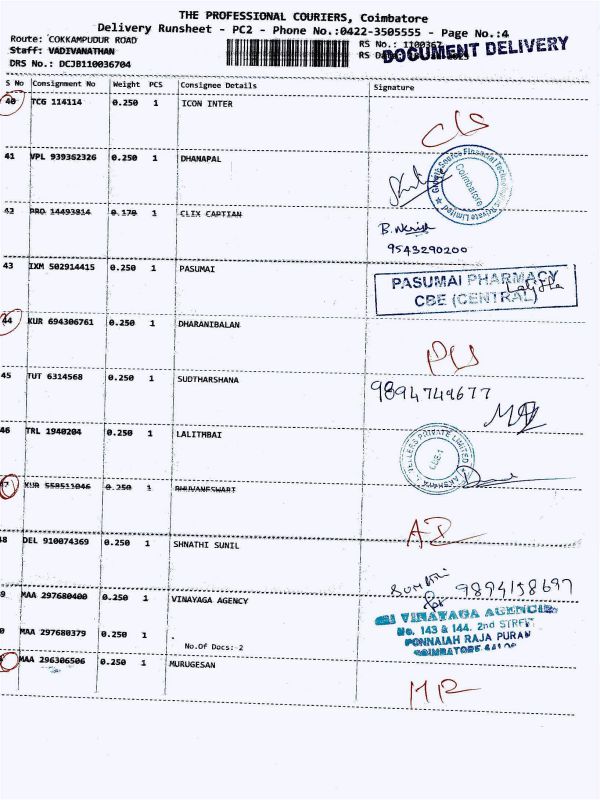 THE PROFESSIONAL COURIERS, Coimbatore
Delivery Runsheet - PC2 - Phone No.:0422-3505555 - Page No.:4
Route: COKKAMPUDUR ROAD
RS No.: 1100367
DOCUMENT DELIVERY
Staff: VADIVANATHAN
RS Da
DRS No.: DCJB110036704
S No Consignment No Weight PCS Consignee Details Signature
40 TCG 114114 0.250 1 ICON INTER
CLS
41 VPL 939362326 0.250 1 DHANAPAL
Coimbatore
Private Limited
42 PRO 14493814 0.170 1 CLIX CAPTIAN
9543290200
43 IXM 502914415 0.250 1 PASUMAI
PASUMAI PHARMACY
CBE (CENTRAL)
44 KUR 694306761 0.250 1 DHARANIBALAN
45 TUT 6314568 0.250 1 SUDTHARSHANA
9894744677
46 TRL 1940204 0.250 1 LALITHBAI
PRIVATE LIMITED
7 KUR 558511046 0.250 1 BHUVANESWARI
48 DEL 910074369 0.250 1 SHNATHI SUNIL
9894158697
9 MAA 297680400 0.250 1 VINAYAGA AGENCY
VINAYAGA AGENCIE
No. 143 & 144. 2nd STREET
0 MAA 297680379 0.250 1 .
PONNAIAH RAJA PURAM
No.Of Docs: 2
COIMBATORE
MAA 296306506 0.250 1 MURUGESAN
MR